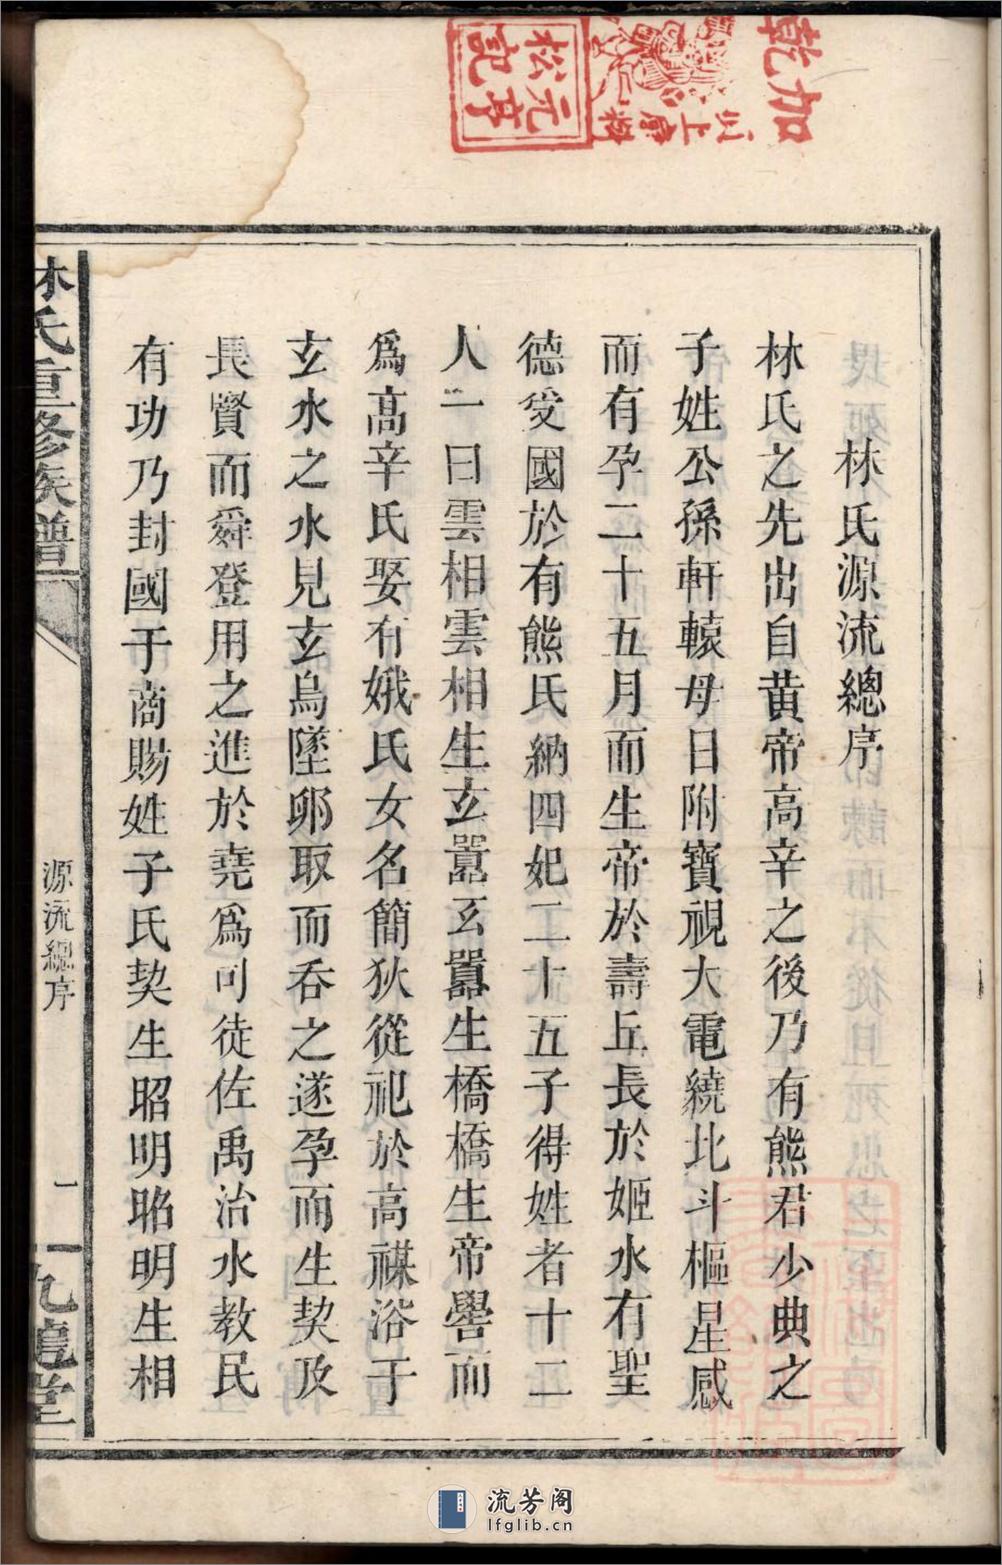 林氏源流總序
林氏之先出自黄帝高辛之後乃有熊君少典之
子姓公孫軒轅母日附寶視大電繞北斗樞星感
而有孕二十五月而生帝於壽丘長於姬水有聖
德受國於有熊氏納四妃二十五子得姓者十二
人一曰雲相雲相生玄囂玄囂生橋橋生帝嚳而
爲高辛氏娶有娥氏女名簡狄從祀於高禖浴于
玄水之水見玄鳥墜卵取而吞之遂孕而生契及
長賢而舜登用之進於堯爲司徒佐禹治水教民
有功乃封國于商賜姓子氏契生昭明昭明生相
林氏重修族譜
源流總序
一
九龍堂
加
乾
松元亭記
流芳阁
lfglib.cn